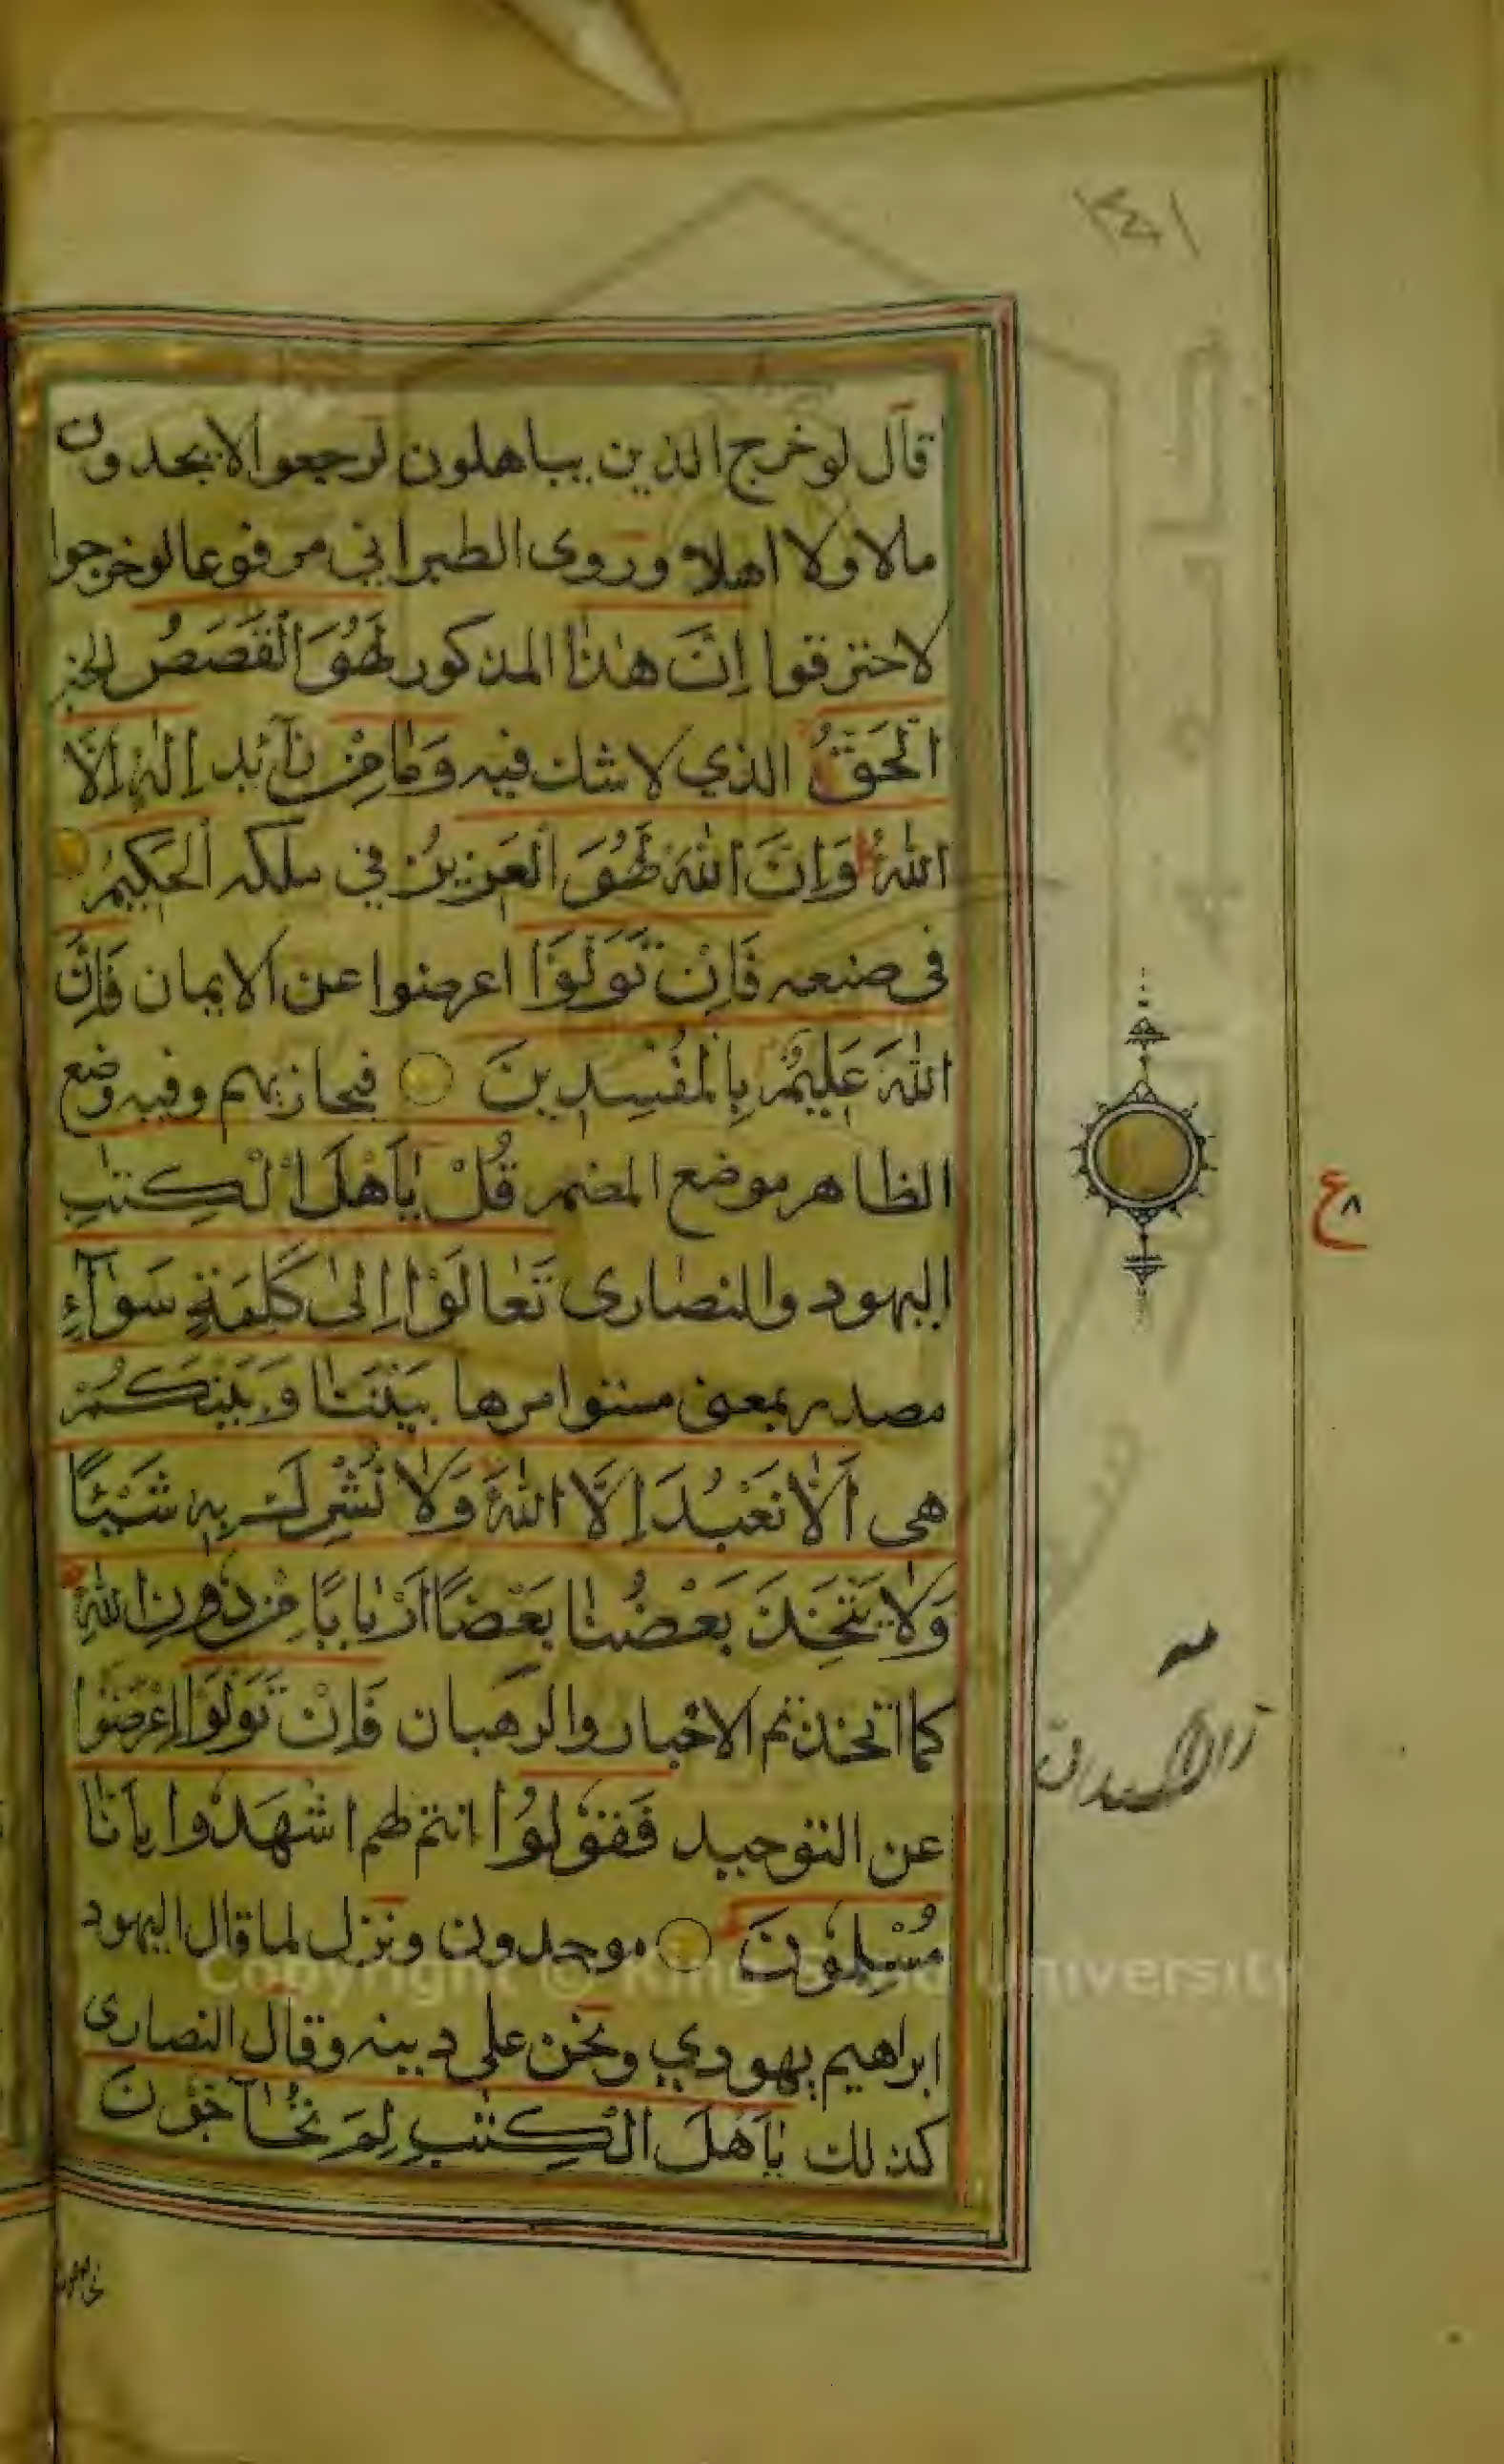 ١٤١
قال لو خرج الذين يباهلون لرجعوا لا يجدون
مالا ولا اهلا وروى الطبراني مرفوعا لو خرجوا
لاحترقوا اِنَّ هٰذَا المذكور لَهُوَ الْقَصَصُ الخبر
الْحَقُّ الذي لا شك فيه وَمَا مِنْ زآئد اِلٰهٍ اِلَّا
اللّٰهُ وَاِنَّ اللّٰهَ لَهُوَ الْعَزِيزُ في ملكه الْحَكِيمُ
في صنعه فَاِنْ تَوَلَّوْا اعرضوا عن الايمان فَاِنَّ
اللّٰهَ عَلِيمٌ بِالْمُفْسِدِينَ فيجازيهم وفيه وضع
الظاهر موضع المضمر قُلْ يَا اَهْلَ الْكِتٰبِ
اليهود والنصارى تَعَالَوْا اِلٰى كَلِمَةٍ سَوَآءٍ
مصدر بمعنى مستو امرها بَيْنَنَا وَبَيْنَكُمْ
هي اَلَّا نَعْبُدَ اِلَّا اللّٰهَ وَلَا نُشْرِكَ بِهِ شَيْئًا
وَلَا يَتَّخِذَ بَعْضُنَا بَعْضًا اَرْبَابًا مِنْ دُونِ اللّٰهِ
كما اتخذتم الاحبار والرهبان فَاِنْ تَوَلَّوْا اعرضوا
عن التوحيد فَقُولُوا انتم لهم اشْهَدُوا بِاَنَّا
مُسْلِمُونَ موحدون ونزل لما قال اليهود
ابراهيم يهودي ونحن على دينه وقال النصارى
كذلك يَا اَهْلَ الْكِتٰبِ لِمَ تُحَآجُّونَ
ع ٨
Copyright © King Saud University